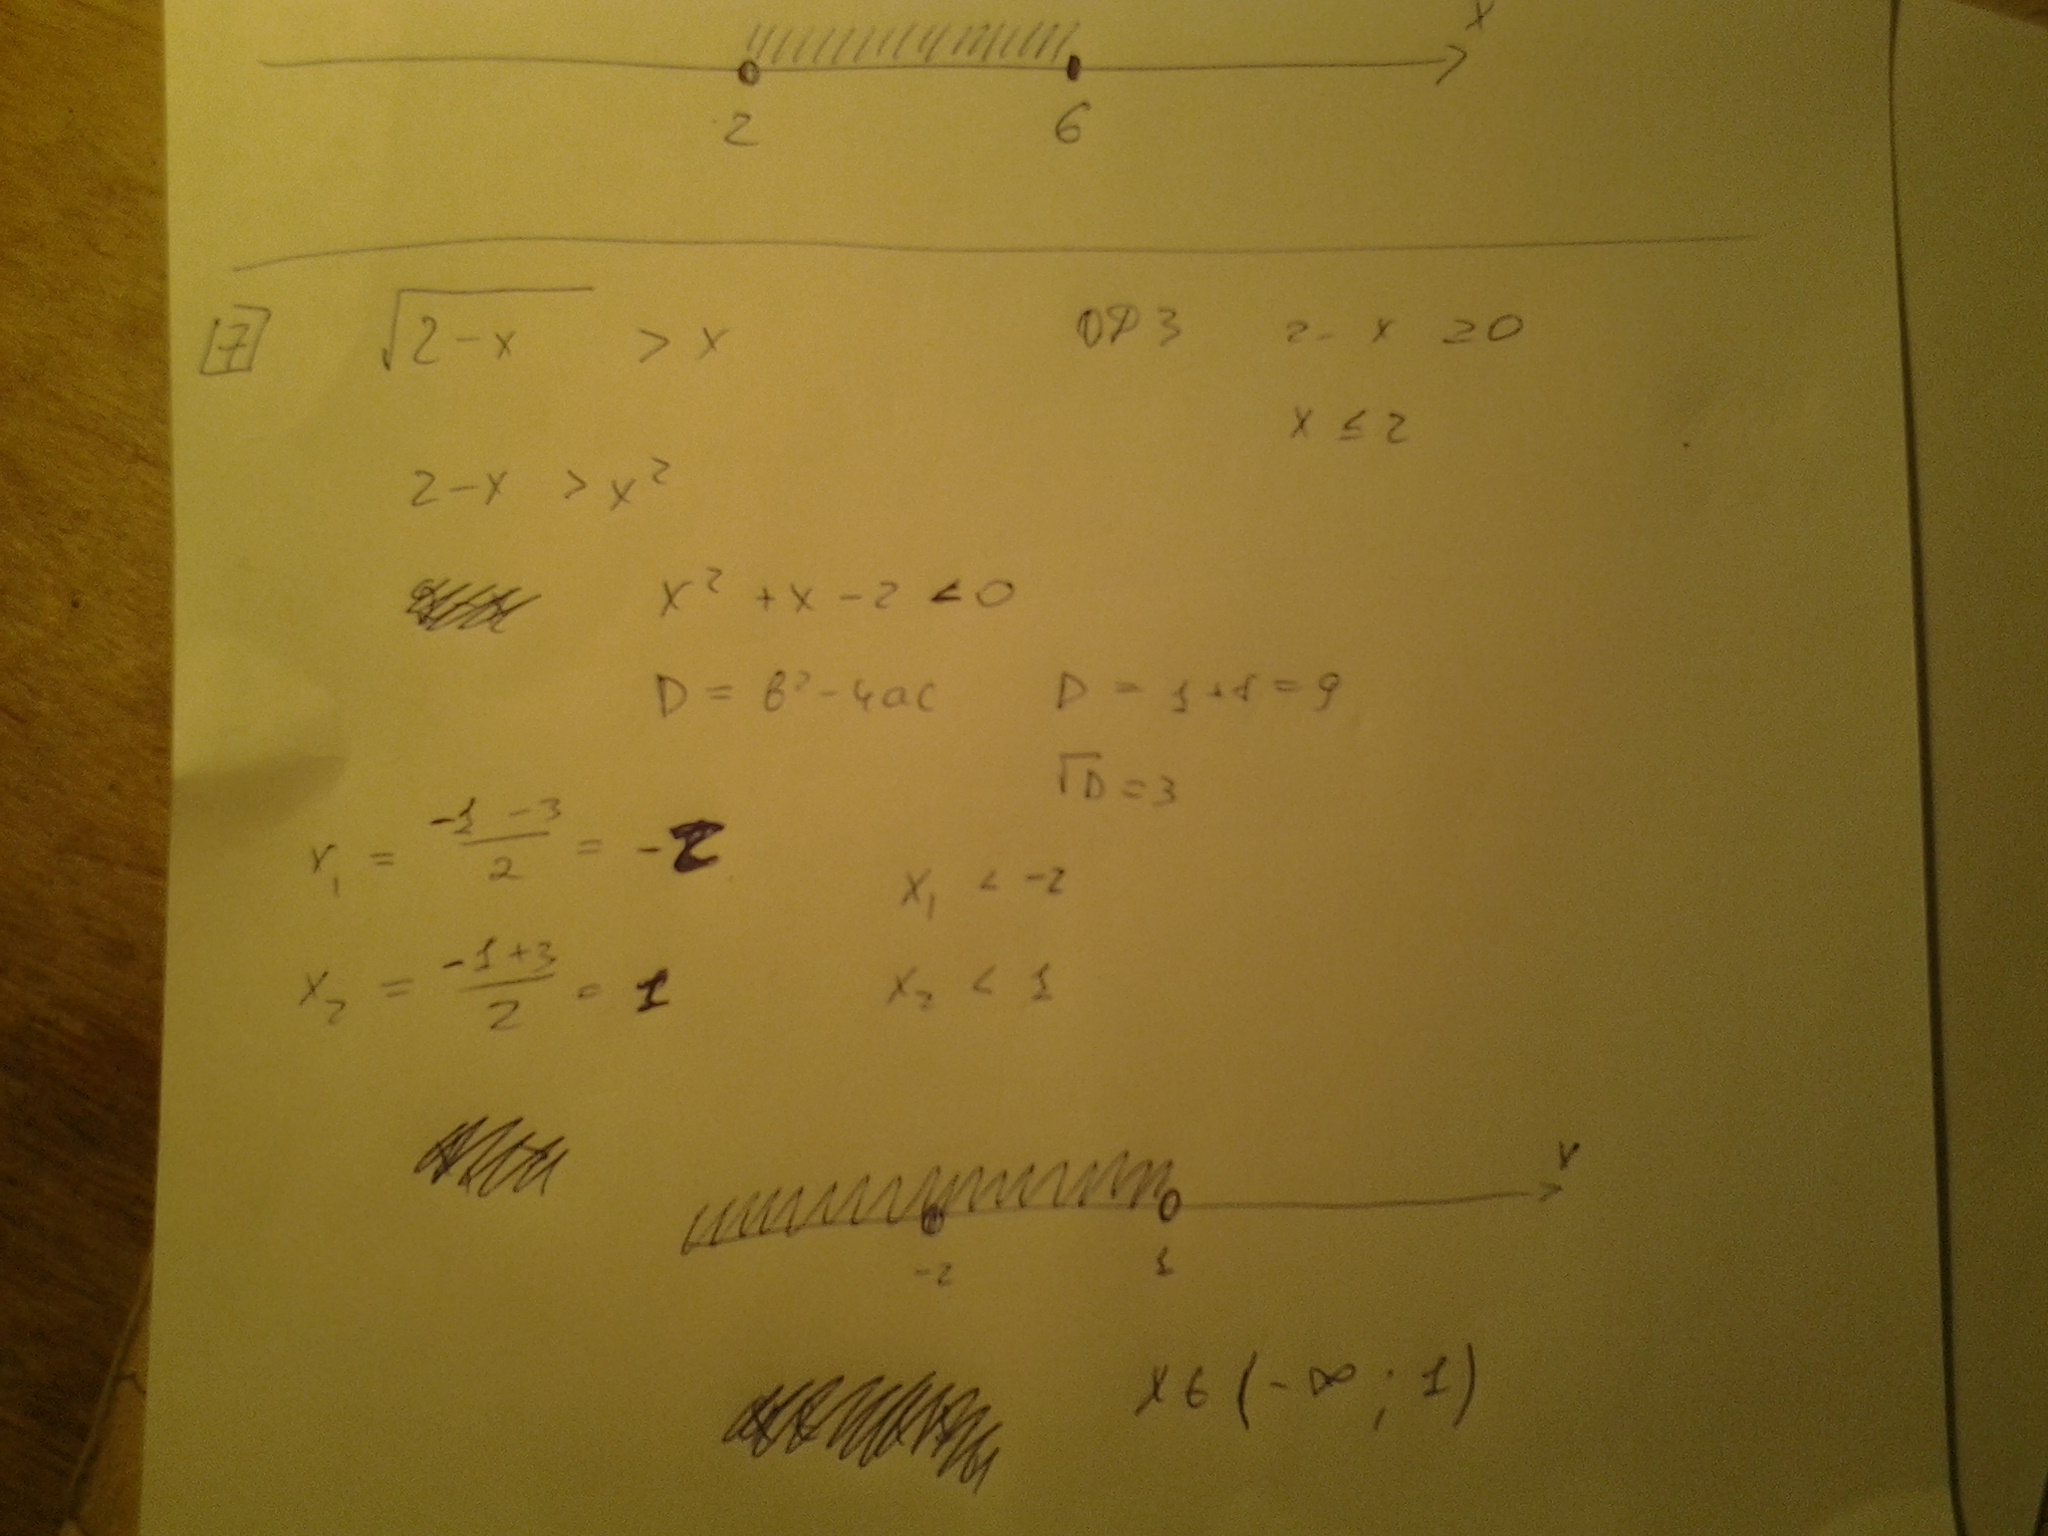 x
2 6
7 √2-x > x ОДЗ 2-x ≥0
x ≤ 2
2-x > x²
x² +x-2 <0
D = b²-4ac D = 1+8=9
√D=3
x₁ = (-1-3)/2 = -2 x₁ < -2
x₂ = (-1+3)/2 = 1 x₂ < 1
x
-2 1
x∈(-∞; 1)